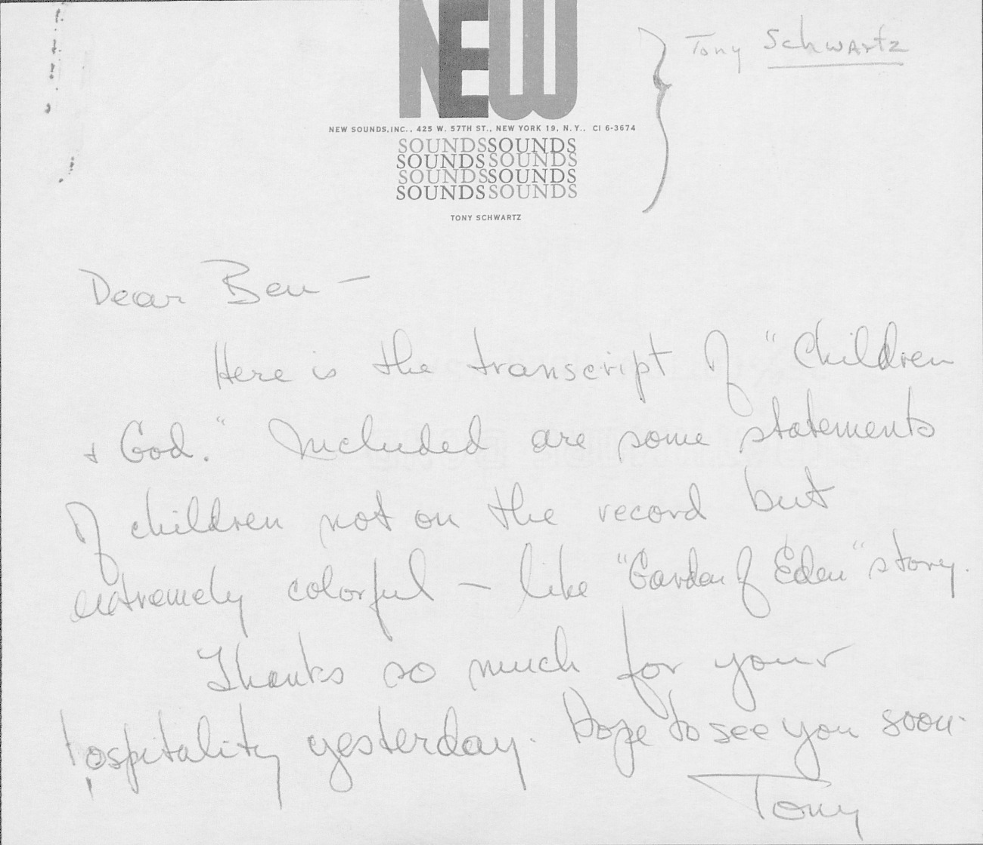 NEW
Tony Schwartz
NEW SOUNDS, INC., 425 W. 57TH ST., NEW YORK 19, N.Y., CI 6-3674
SOUNDSSOUNDS
SOUNDSSOUNDS
SOUNDSSOUNDS
SOUNDSSOUNDS
TONY SCHWARTZ
Dear Ben —
Here is the transcript of "Children
+ God." Included are some statements
of children not on the record but
extremely colorful — like "Garden of Eden" story.
Thanks so much for your
hospitality yesterday. Hope to see you soon.
Tony